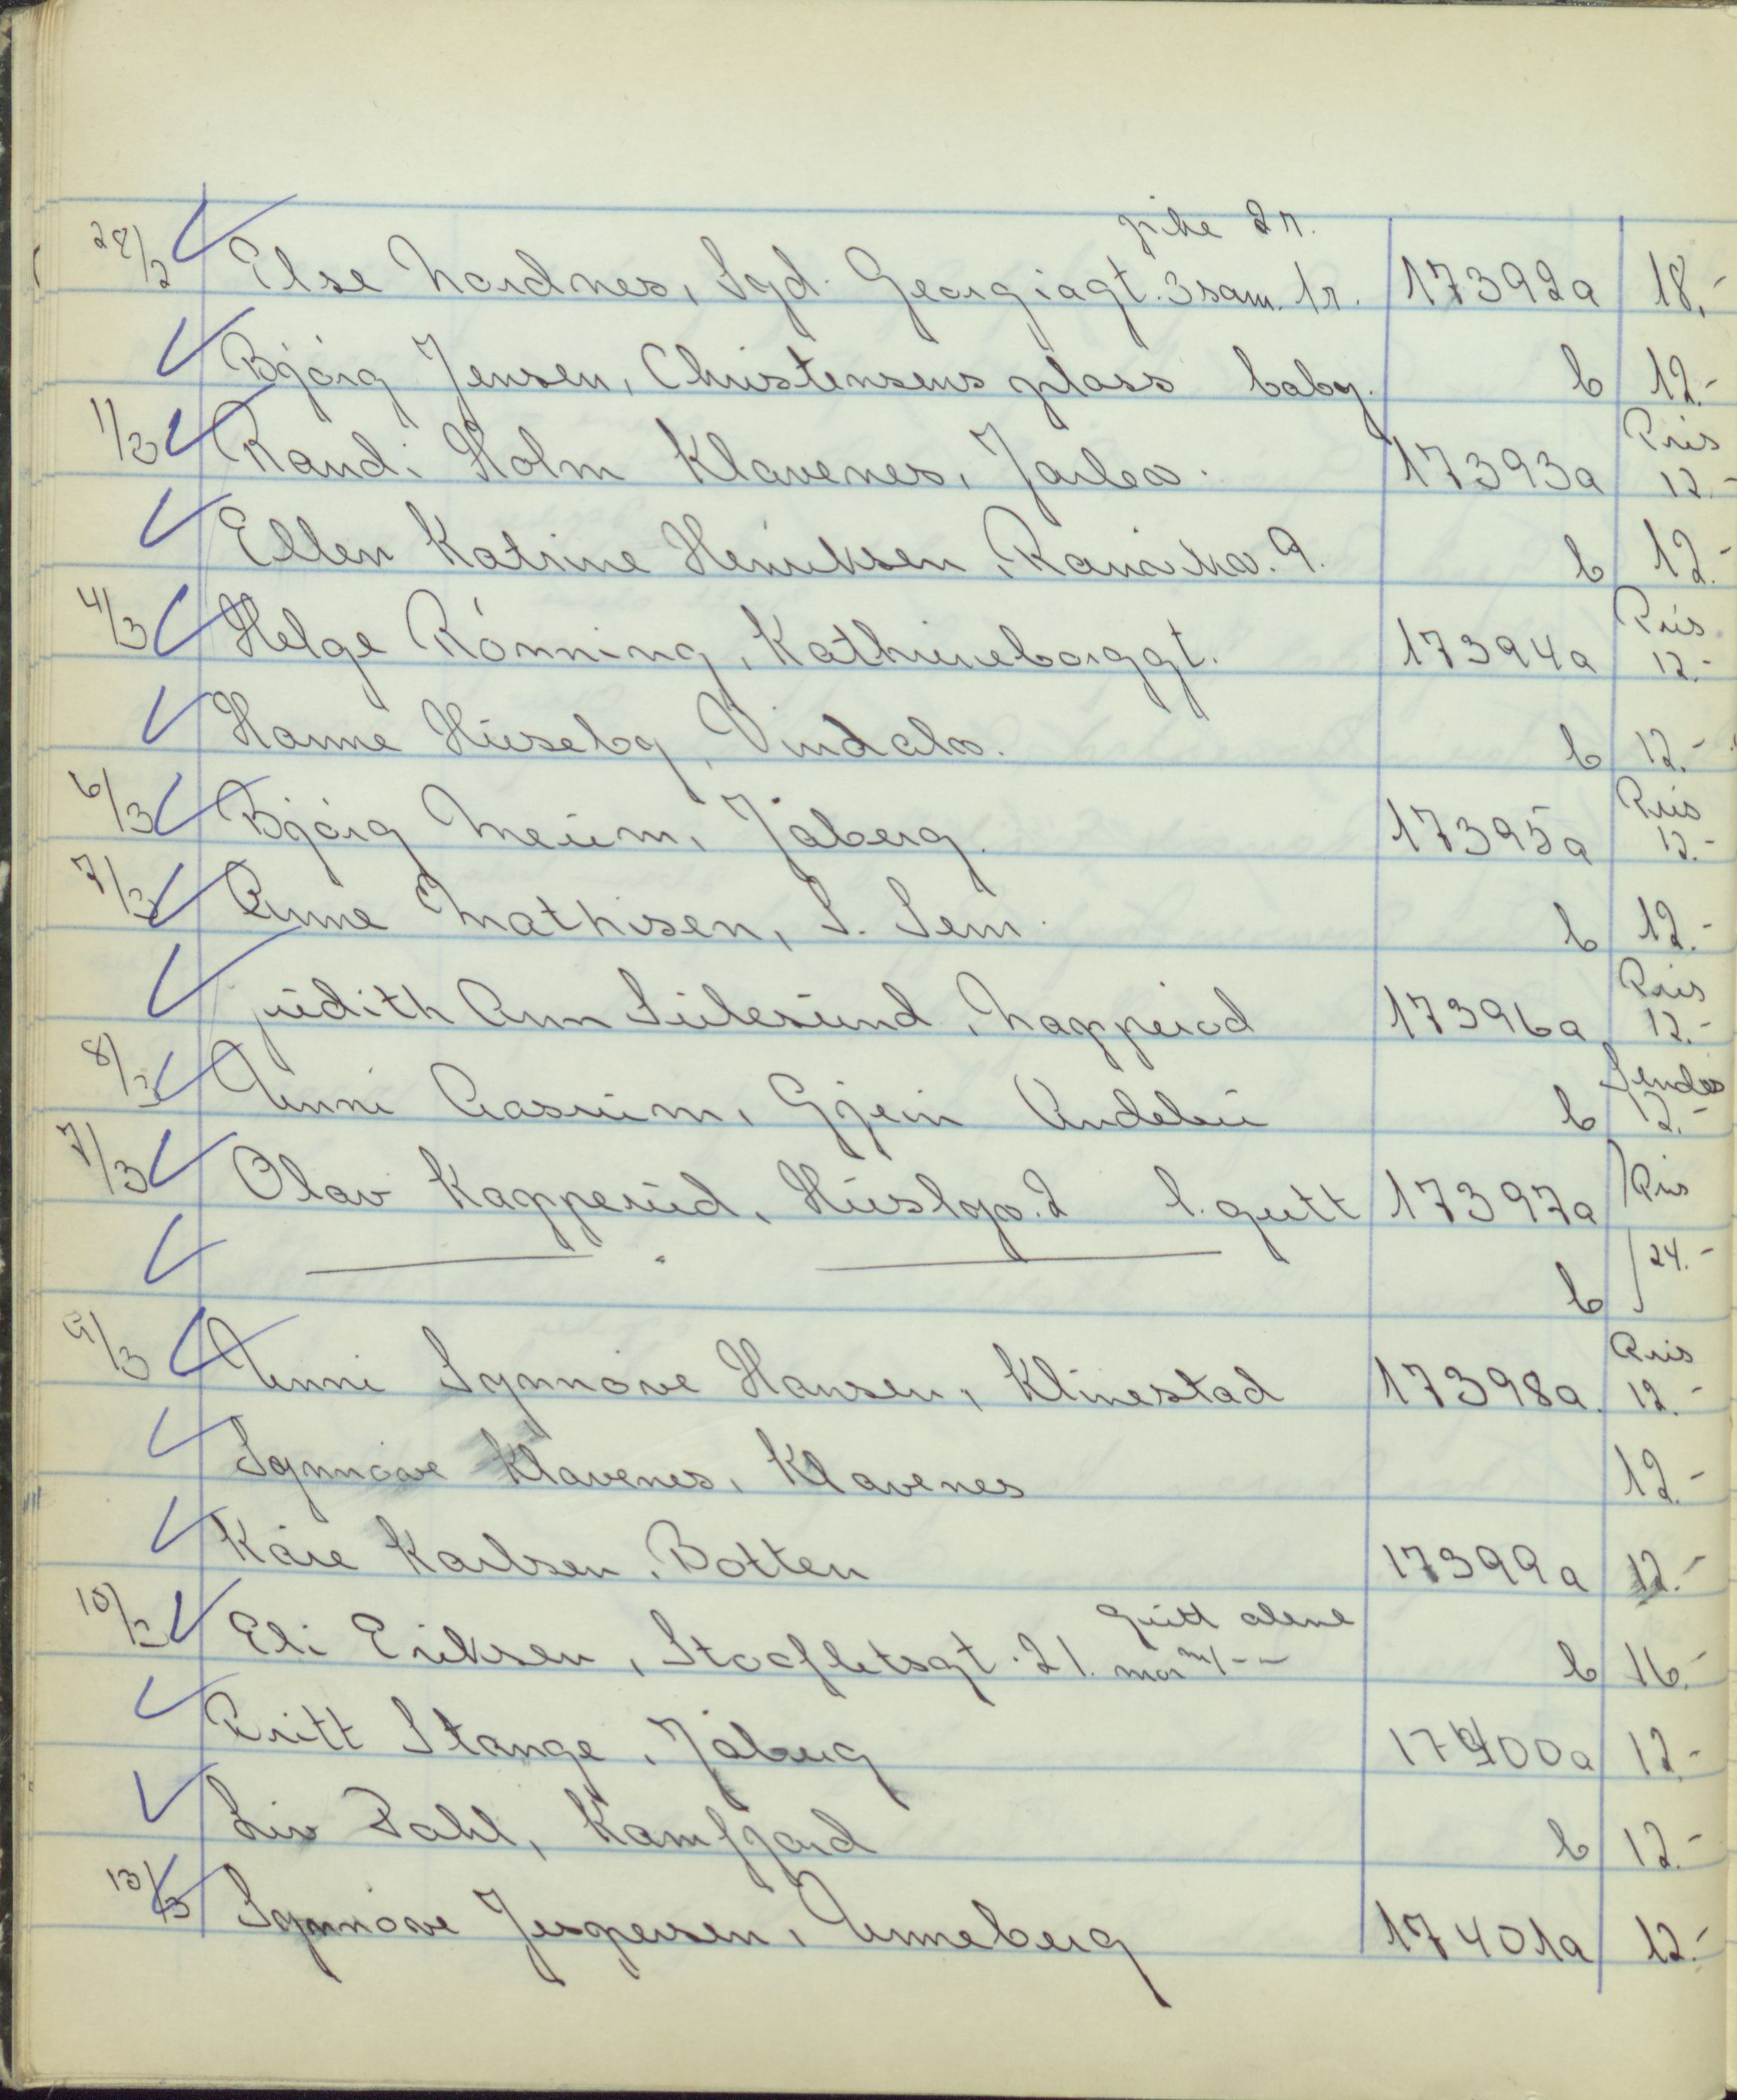 pike 2 r.
28/2 Else Nordnes, Sgd. Georgiagt. 3 sam. 1 r. 17392a 18,-
Bjørg Jensen, Christensens plass baby. b 12.-
Pris
1/3 Randi Holm Klavenes, Jarlsø. 17393a 12.-
Ellen Katrine Henriksen, Ranvikv. 9. b 12.-
Pris
4/3 Helge Rönning, Kathrineborggt. 17394a 12.-
Hanne Huseby, Vindalv. b 12.-
Pris
6/3 Bjørg Meum, Jåberg. 17395a 12.-
7/3 Anne Mathisen, S. Sem. b 12.-
Pris
Judith Ann Sulesund, Napperød 17396a 12.-
Sendes
8/3 Unni Aasrum, Gjein Andebu b 12.-
7/3 Olav Kapperud, Huslyv. 2 l. gutt 17397a Pris
— " — b 24.-
Pris
9/3 Unni Synnøve Hansen, Klinestad 17398a. 12.-
Synnøve Klavenes, Klavenes 12.-
Kåre Karlsen, Botten 17399a 12.-
gutt alene
10/3 Eli Eriksen, Stocfletsgt. 21. mor m/ -- b 16.-
Britt Stange, Jåberg 17400a 12.-
Liv Dahl, Kamfjord b 12.-
13/3 Synnøve Jespersen, Unneberg 17401a 12.-